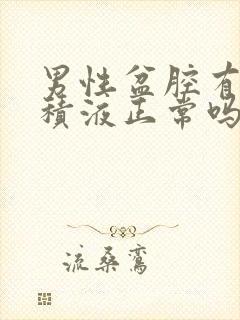 男性盆腔有
積液正常吗
流桑鸞